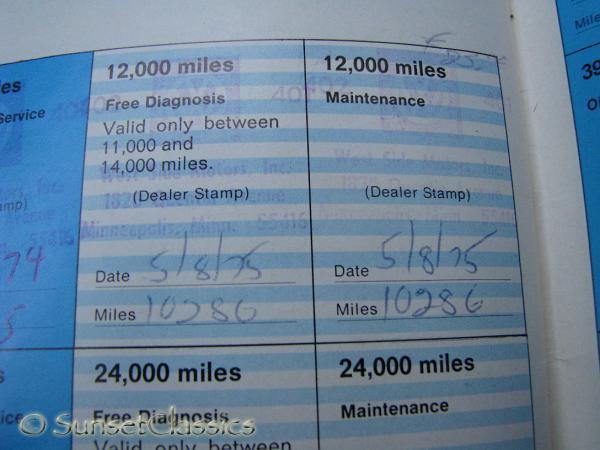 12,000 miles
Free Diagnosis
Valid only between
11,000 and
14,000 miles.
(Dealer Stamp)
Date 5/8/75
Miles 10286
12,000 miles
Maintenance
(Dealer Stamp)
Date 5/8/75
Miles 10286
West Side Motors, Inc.
Minneapolis, Minn. 55416
24,000 miles
Free Diagnosis
Valid only between
24,000 miles
Maintenance
Service
74
5
39
© SunsetClassics